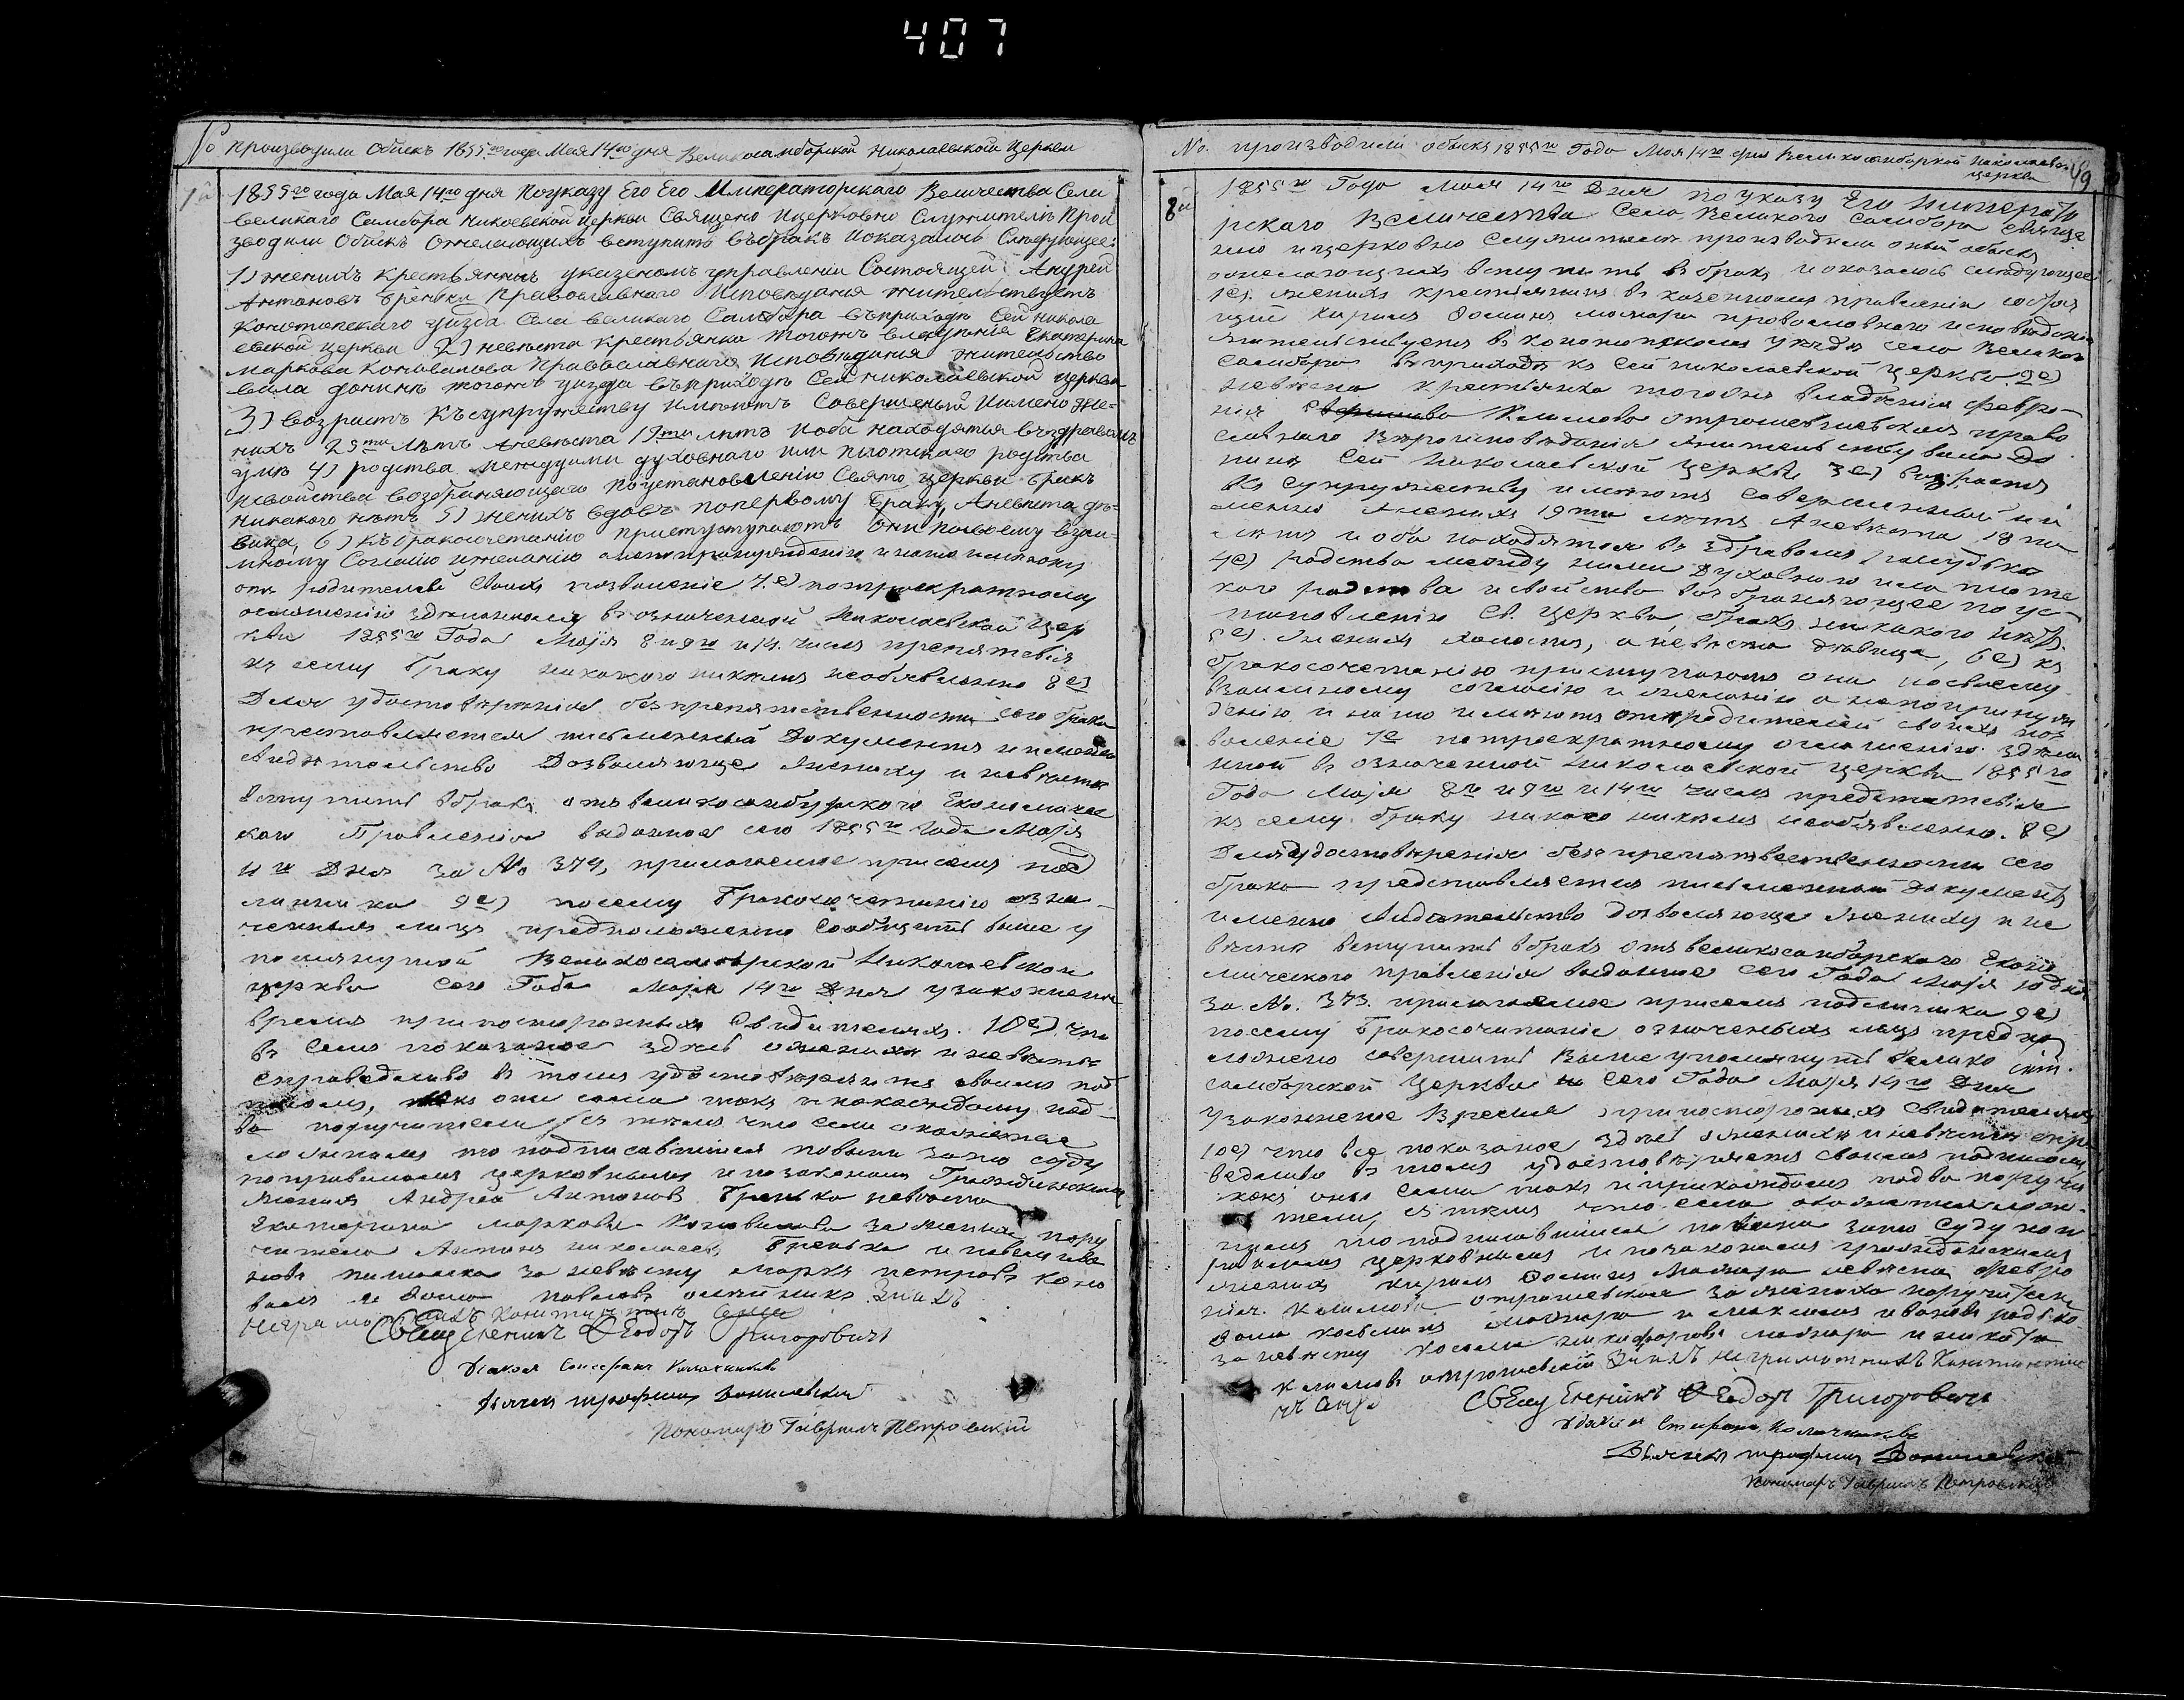 407
№ производили Обыскъ 1855го года Мая 14го дня Великосамборской Николаевской Церкви
7й
1855го года Мая 14го дня Поуказу Его Его Императорскаго Величества Села
великаго Самбора Никоевской церкви Священо Ицерковно Служители Прои
зводили Обыскъ Ожелающихъ вступить въбракъ Иоказалось Следующее:
1) женихъ крестьянинъ уКазеномъ управленіи Состоящей Андрей
Антоновъ Гренька Православнаго Исповѣданія жительствуетъ
Конотопскаго уѣзда Села великаго Самбора въприходѣ Сей никола
евской церкви 2) невѣста крестьянка тогожъ владѣнія Екатерина
маркова Коновалова Православнаго Исповѣданія жительство
вала донинѣ тогожъ уѣзда въприходѣ Сей николаевской церкви
3) возрастъ Къ супружеству Имѣютъ Совершеный Имено же-
нихъ 25ти лѣтъ Аневѣста 19ти лѣтъ Иоба находятся въздравомъ
умѣ 4) родства междуими духовнаго или плотскаго родства
исвойства возбраняющаго Поустановленію Свято церкви бракъ
никакого нѣтъ 5) женихъ вдовъ попервому браку, Аневѣста дѣ-
вица, 6) къ бракосочетанію приступступаютъ они посвоему взаи-
мному Согласію ижеланію анепопринуждению инато имѣютъ
отъ родителей своихъ позволеніе 7е) по троекратному
оглашенію зделанному въ означенной Николаевской Цер
кви 1855го Года Маія 8 и 9го и 14. числа препятствія
къ сему браку никакого никѣмъ необъявлено 8е)
Для удостовѣренія безпрепятственности сего брака
представляется письменный Документъ именно
Свидѣтельство Дозволяюще Жениху и невѣстѣ
вступить вбракъ отъ великосамбурского Екомическ
кого Правленія выданное сего 1855го Года Маія
11го Дня за № 379, приложенное присемъ под
линника 9е) посему Бракосочетанію озна-
ченныхъ лицъ предположено Сообщить выше у
помянутой Великосамборской Николаевской
церкви сего Года Маія 14го Дня узаконенное
время при постороннихъ Свидителяхъ. 10е) что
въ семъ показаное здѣсь ожениху и невѣстѣ
справедливо в томъ удостовѣряютъ своимъ под
писомъ, какъ они сами такъ и покаждому под-
ва поручителя съ тѣмъ что если окажетъся
ложнымъ то подписавшіися повины зато суду
поправиламъ церковнымъ и позаконамъ Гражданскимъ
Женихъ Андрей Антоновъ Гренька невѣста
Екатерина маркова Коновалова за жениха пору
чители Антонъ николаевъ Гренька и павелъ ива
новъ за невѣсту маркъ петровъ коно
валъ и Фома павловъ олейникъ Занихъ
неграмотнихъ
СвЕщЕнникъ ФЕодоръ Григоровичъ
Діаконъ Стефанъ Колачниковъ
Дьячекъ трофимъ Данилевскій
Пономарь Гавріилъ Петровскій
№. производили обыскъ 1855го Года Мая 14го дня Великосамборкой Николаевской
церкви
49
8й
1855го Года Мая 14го Дня по указу Его Императо
рскаго Величества Села Великого Самбора Свяще
но ицерковно Служители производили оный обыскъ
ожелающихъ вступить в бракъ и оказалось слидующее
1е). женихъ крестьянинъ в казенномъ правленіи состоя
щие Кирилъ Фоминъ мошара православного исповѣданія
жительствуетъ в конотопскомъ уѣздѣ село Великого
самбора въприходѣ къ Сей николаевской церкве. 2е)
невѣста крестьянка тогожъ владѣнія февро-
нія Климова право
славного Вѣроисповѣданія Жительствувала До
нинѣ Сей Николаевской Церкви, 3е) возрастъ
къ супружеству имѣютъ Совершенный и и
менно Женихъ 19ти лѣтъ Аневѣста 18ти
лѣтъ и оба находятся въ здравомъ разсудкѣ
4е) родства между ними Духовного или плоте
кого родства исвойство возбраняющее по ус-
тановленію Св. Церкви, бракъ никакого нѣтъ.
5е). Женихъ холостъ, а невѣста дѣвица, 6е) къ
бракосочетанію приступаютъ они посвоему
взаимному согласію и желанію а непопринуж
денію и нато имѣютъ отъродителей своихъ поз
воленіе 7е потроекратному оглашенію здѣла
нной в означенной Николаевской церкви 1855го
Года Маія 8го и 9го и 14го числа предятствія
къ сему браку никакого никѣмъ необъявлено. 8е)
Дляудостовѣренія безпрепятвественности сего
брака представляется письменной документъ
именно Свидѣтельство дозволяюще жениху и не
вѣстѣ вступить вбракъ отъ великосамборского Еконо
мического правленія выданное сего Года Маія 10 дня
за №. 373. приложенное присемъ подлинника 9е)
посему бракосочитание означеныхъ лицъ предпо
ложено совершить Выше упомянуть Велико
самборской Церкви сего Года Маія 14го Дня
узаконное Время припостороннихъ Свидителяхъ
10е) что все показаное здѣсь ожениху и невѣсте спра
ведливо в томъ удостовѣряетъ своимъ подписомъ
какъ оны сами такъ и прикаждомъ подва поручи
тели, съ тѣмъ что если окажется лож-
нымъ то подписавшіися повины зато Суду поп
равиламъ церковнымъ и позаконамъ гражданскимъ
женихъ кирилъ Фоминъ Мошара невѣста февро
нія. Климова за жениха поручители
Фома косьминъ Мошара и максимъ ивановъ радько
за невѣсту косьма никифоровъ мошара и никита
климовъ Занихъ неграмотнихъ
СвЕщЕнникъ ФЕодоръ Григоровичъ
Діаконъ Стефанъ Колачниковъ
Дьячекъ трофимъ Данилевскій
Пономарь Гавріилъ Петровскій